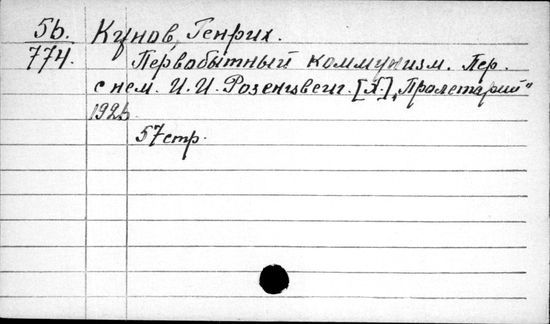 5б. Кунов, Генрих.
774. Первобытный коммунизм. Пер.
с нем. И. И. Розенцвейг. [Х], „Пролетарий"
192б
57 стр.